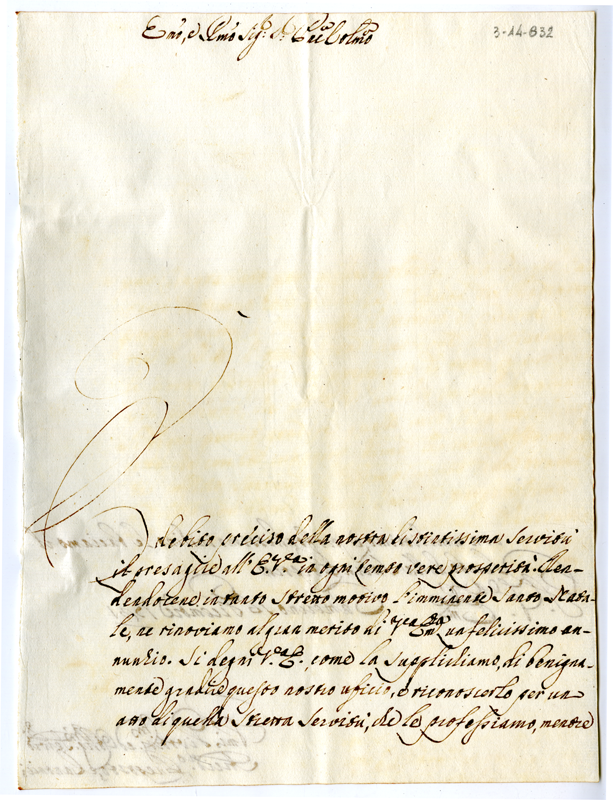 Emo, e Rmo Sigr. Sr. Pne Colmo
3-14-832
È debito preciso della nostra distintissima servitù
il presagire all' E. Vra in ogni tempo vere prosperità. Ren-
dendocene intanto stretto motivo l'imminente Santo Nata-
le, ne rinoviamo al gran merito di Vra Emza un felicissimo an-
nunzio. Si degni V.ra E., come la supplichiamo, di benigna-
mente gradire questo nostro ufficio, e riconoscerlo per un
atto di quella stretta servitù, che le professiamo, mentre